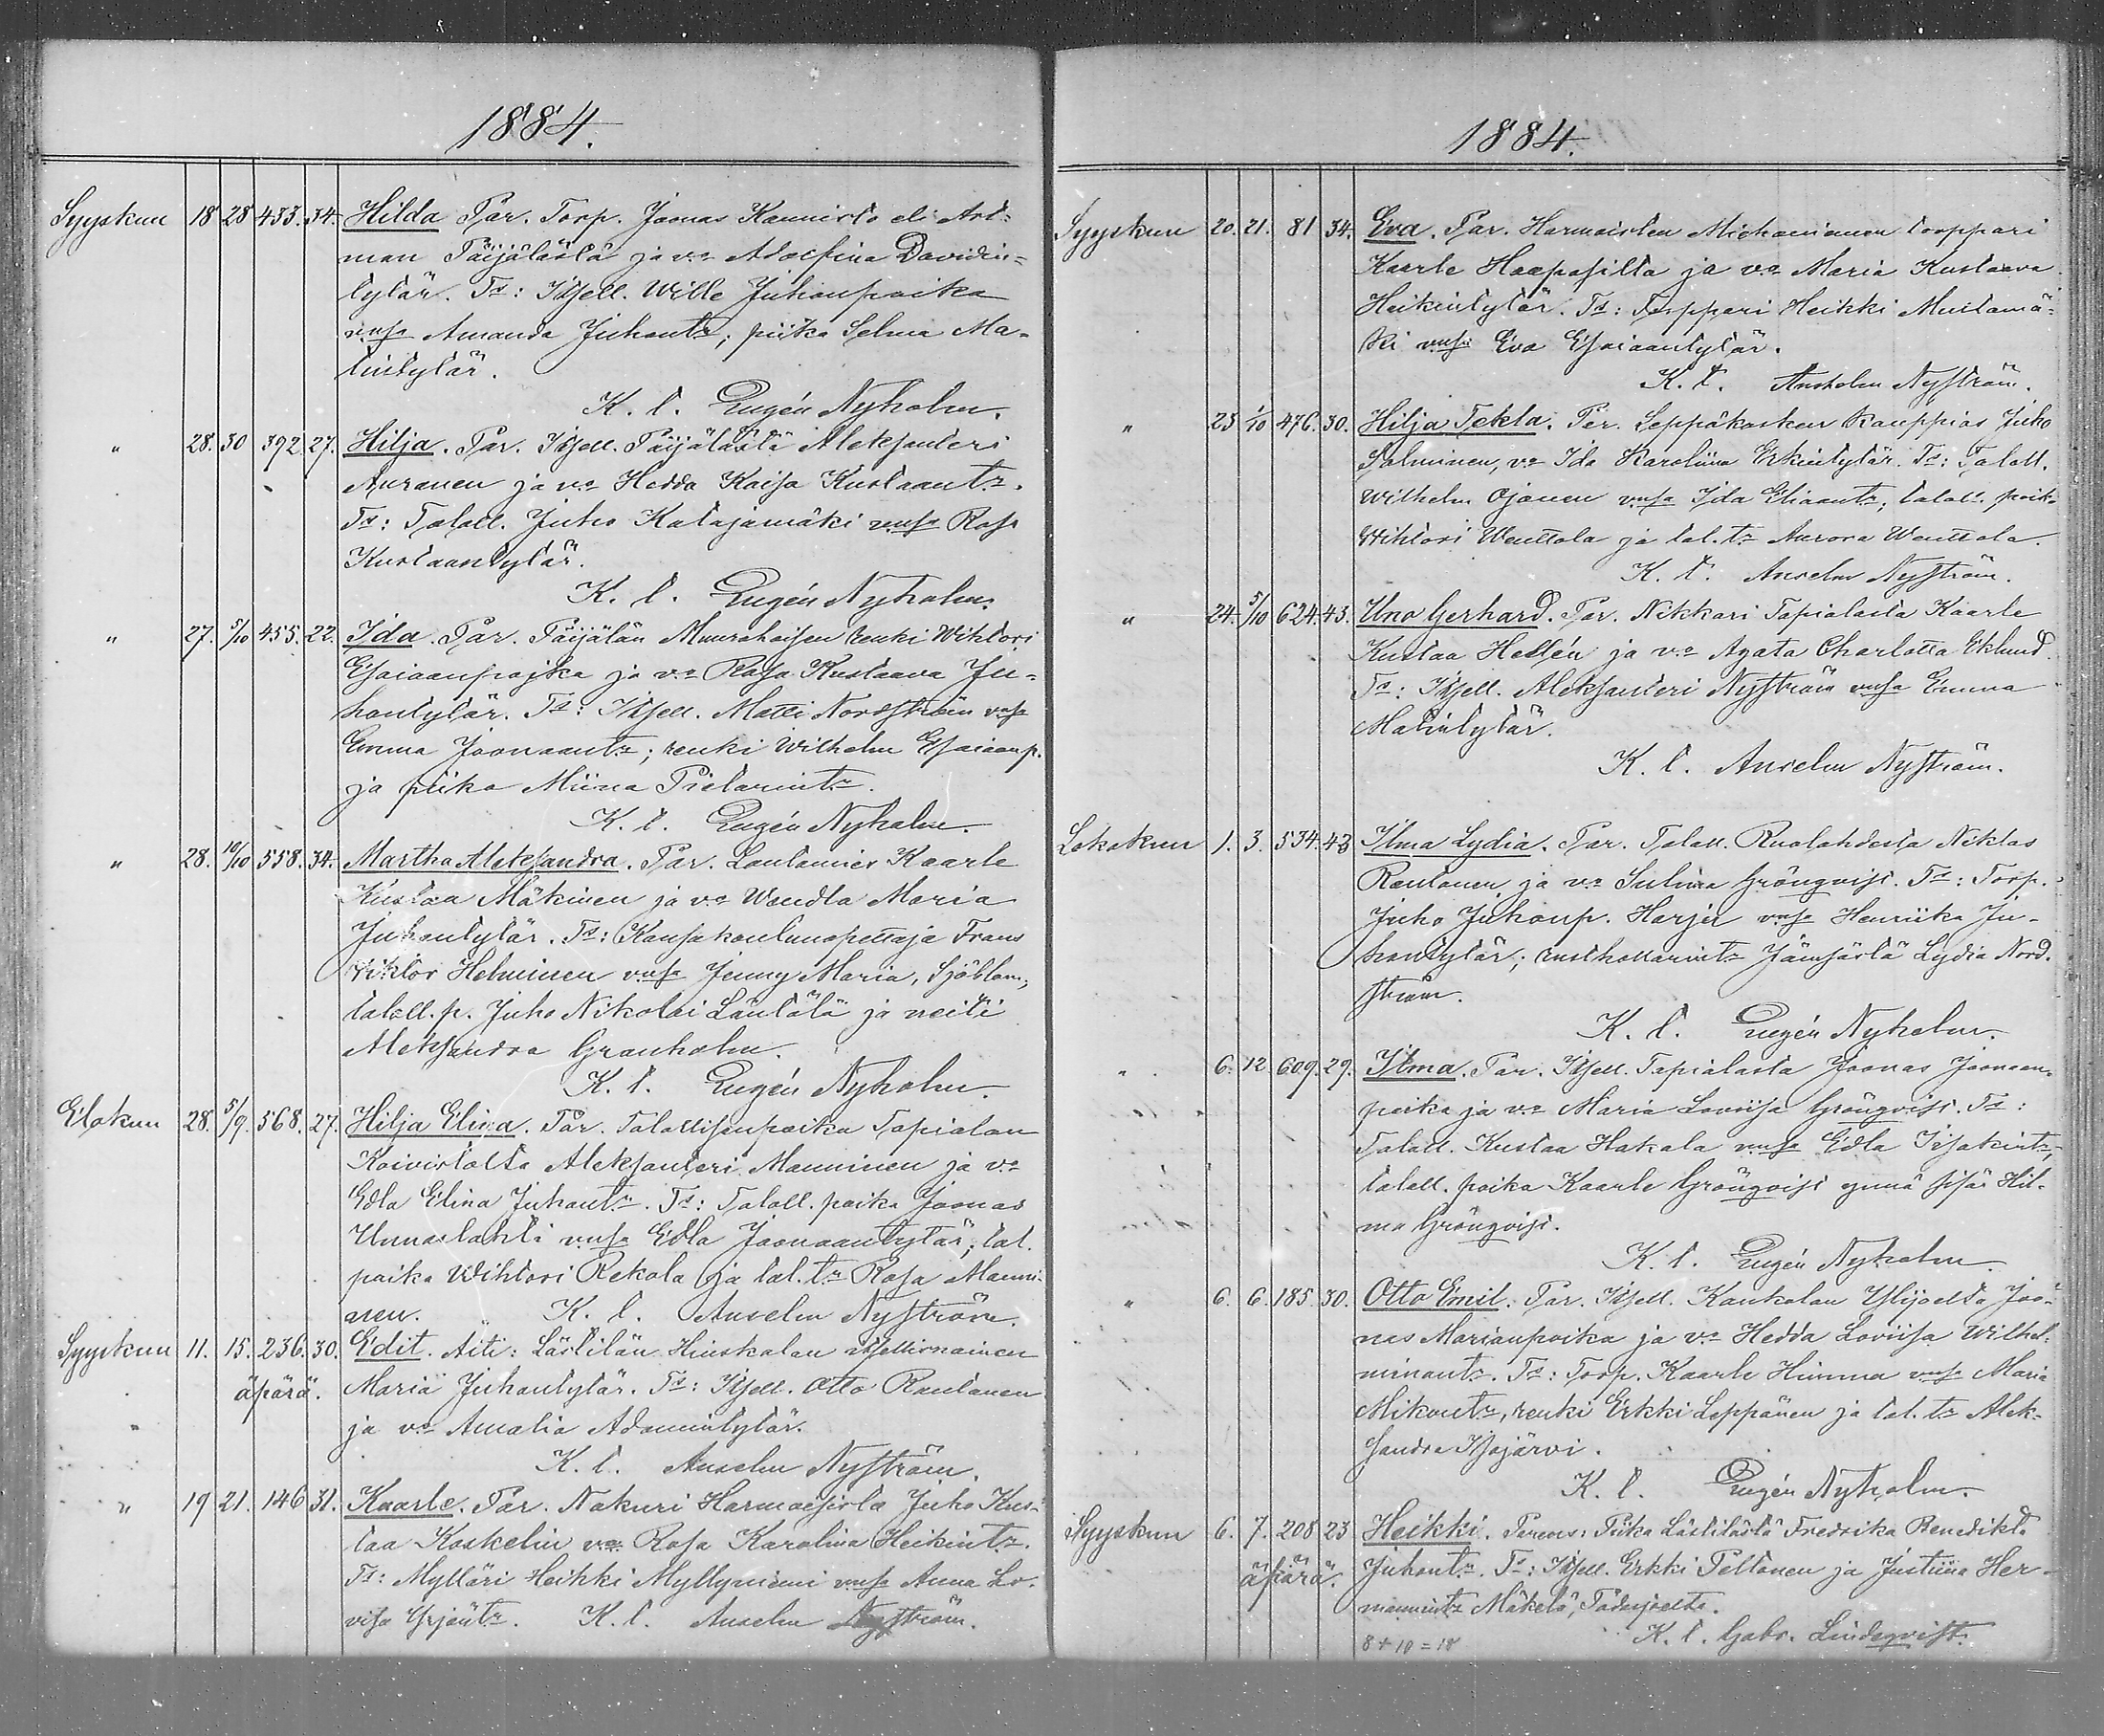 1884.
Syyskuu 18 28 433. 34. Hilda Par. Torp. Joonas Kannisto eli Art-
man Päijälästä ja vo Adolfina Davidin-
tytär. Td: Itsell. Wille Juhonpoika
vmsa Amanda Juhontr; piika Selma Ma-
tintytär.
K. t. Eugén Nyholm.
" 28. 30 392 27. Hilja. Par. Itsell. Päijälästä Aleksanteri
Auranen ja vo Hedda Kaisa Kustaantr.
Td: Talall. Juho Katajamäki vmsa Rosa
Kustaantytär.
K. t. Eugén Nyholm.
" 27. 5/10 455. 22. Ida. Par. Päijälän Muurahaisen renki Wihtori
Esaiaanpojka ja vo Rosa Kustaava Ju-
hontytär. Td: Itsell. Matti Nordström vmsa
Emma Joonaantr; renki Wilhelm Esaiaanp.
ja piika Miina Pietarintr.
K. t. Eugén Nyholm.
" 28. 10/10 558. 34. Martha Aleksandra. Par. Lautamies Kaarle
Kustaa Mäkinen ja vo Wendla Maria
Juhontytär. Td: Kansakoulunopettaja Frans
Viktor Helminen vmsa Jenny Maria, Sjöblom,
talall. p. Juho Nikolai Läntölä ja neiti
Aleksandra Granholm.
K. t. Eugén Nyholm.
Elokuu 28. 5/9. 568. 27. Hilja Elina. Par. Talollisenpoika Tapialan
Koivistolta Aleksanteri Manninen ja vo
Edla Elina Juhontr. Td: Talall. poika Joonas
Unnaslahti vmsa Edla Joonaantytär; tal.
poika Wihtori Rekola ja tal. tr Rosa Manni-
nen. K. t. Anselm Nyström.
Syyskuu 11. 15. 236. 30. Edit. Äiti: Lästilän Hinskalan itsellisnainen
äpärä. Maria Juhontytär. Td: Itsell. Otto Rantanen
ja vo Amalia Adamintytär.
K. t. Anselm Nyström.
" 19 21. 146 31. Kaarle. Par. Nahuri Harmoisista Juho Kus-
taa Koskelin vo Rosa Karolina Heikintr.
Td: Mylläri Heikki Myllyniemi vmsa Anna Lo-
visa Yrjöntr. K. t. Anselm Nyström.
1884.
Syyskuu 20. 21. 81 34. Eva. Par. Harmoisten torppari
Kaarle Haapasilta ja vo Maria Kustaava
Heikintytär. Td: Torppari Heikki Mustamä-
ki vmsa Eva Esaiaantytär.
K. t. Anshelm Nyström.
" 23 1/10 476. 30. Hilja Tekla. Par. Leppäkosken kauppias Juho
Salminen, vo Ida Karoliina Erkintytär. Td: Talall.
Wilhelm Ojanen vmsa Ida Eliaantr; talall. poik.
Wihtori Wenttola ja tal. tr Aurora Wenttola.
K. t. Anselm Nyström.
" 24. 5/10 624. 43. Uno Gerhard. Par. Nikkari Tapialasta Kaarle
Kustaa Hellén ja vo Agata Charlotta Eklund.
Td: Itsell. Aleksanteri Nyström vmsa Emma
Matintytär.
K. t. Anselm Nyström.
Lokakuu 1. 3. 534. 43 Ilma Lydia. Par. Talall. Ruolahdesta Niklas
Rautanen ja vo Sulina Gröngvist. Td: Torp.
Juho Juhonp. Harju vmsa Henriika Ju-
hontytär; rusthollarintr Jämsästä Lydia Nord-
ström.
K. t. Eugén Nyholm.
" 6. 12 609. 29. Ilma. Par. Itsell. Tapialasta Joonas Joonaan-
poika ja vo Maria Loviisa Gröngvist. Td:
Talall. Kustaa Hakala vmsa Edla Isakintr;
talall. poika Kaarle Gröngvist ynnä sisar Hil-
ma Gröngvist.
K. t. Eugén Nyholm.
" 6. 6. 185. 30. Otto Emil. Par. Itsell. Kaukolan Ylijoelta Joo-
nas Marianpoika ja vo Hedda Loviisa Wilhel-
minantr. Td: Torp. Kaarle Himma vmsa Maria
Mikontr, renki Erkki Leppänen ja tal. tr Alek-
sandra Isojärvi.
K. t. Eugén Nyholm.
Syyskuu 6. 7. 208 23 Heikki. Piika Lästilästä Fredrika Benedikta
äpärä. Juhontr. Td: Itsell. Erkki Peltonen ja Justiina Her-
mannintr Mäkelä, Pädesjoelta.
8+10=18 K. t. Gabr. Lindeqvist.